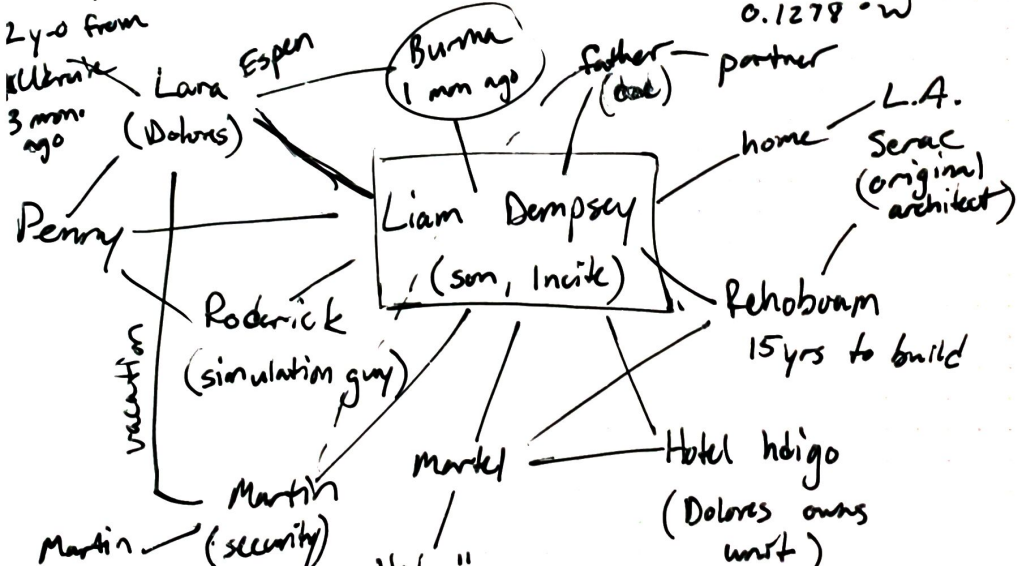 2 y-o from
Ukraine
3 mon.
ago
Lara
(Dolores)
Espen
Burma
1 mon ago
father
partner
0.1278 · W
home
L.A.
Serac
(original
architect)
Penny
Liam Dempsey
(son, Incite)
Rehoboam
15yrs to build
Roderick
(simulation guy)
vacation
Martin
(security)
Martin
Martel
Hotel Indigo
(Dolores owns
unit)